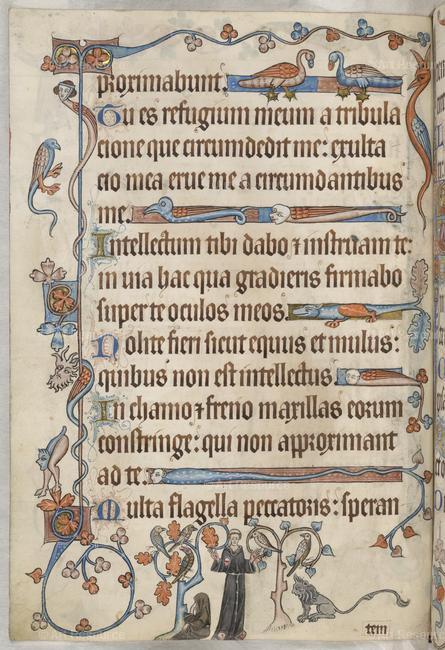 proximabunt.
Tu es refugium meum a tribula
cione que circumdedit me: exulta
cio mea erue me a circumdantibus
me.
Intellectum tibi dabo ⁊ instruam te:
in uia hac qua gradieris firmabo
super te oculos meos.
Nolite fieri sicut equus et mulus:
quibus non est intellectus.
In chamo ⁊ freno maxillas eorum
constringe: qui non approximant
ad te.
Multa flagella peccatoris: speran
tem